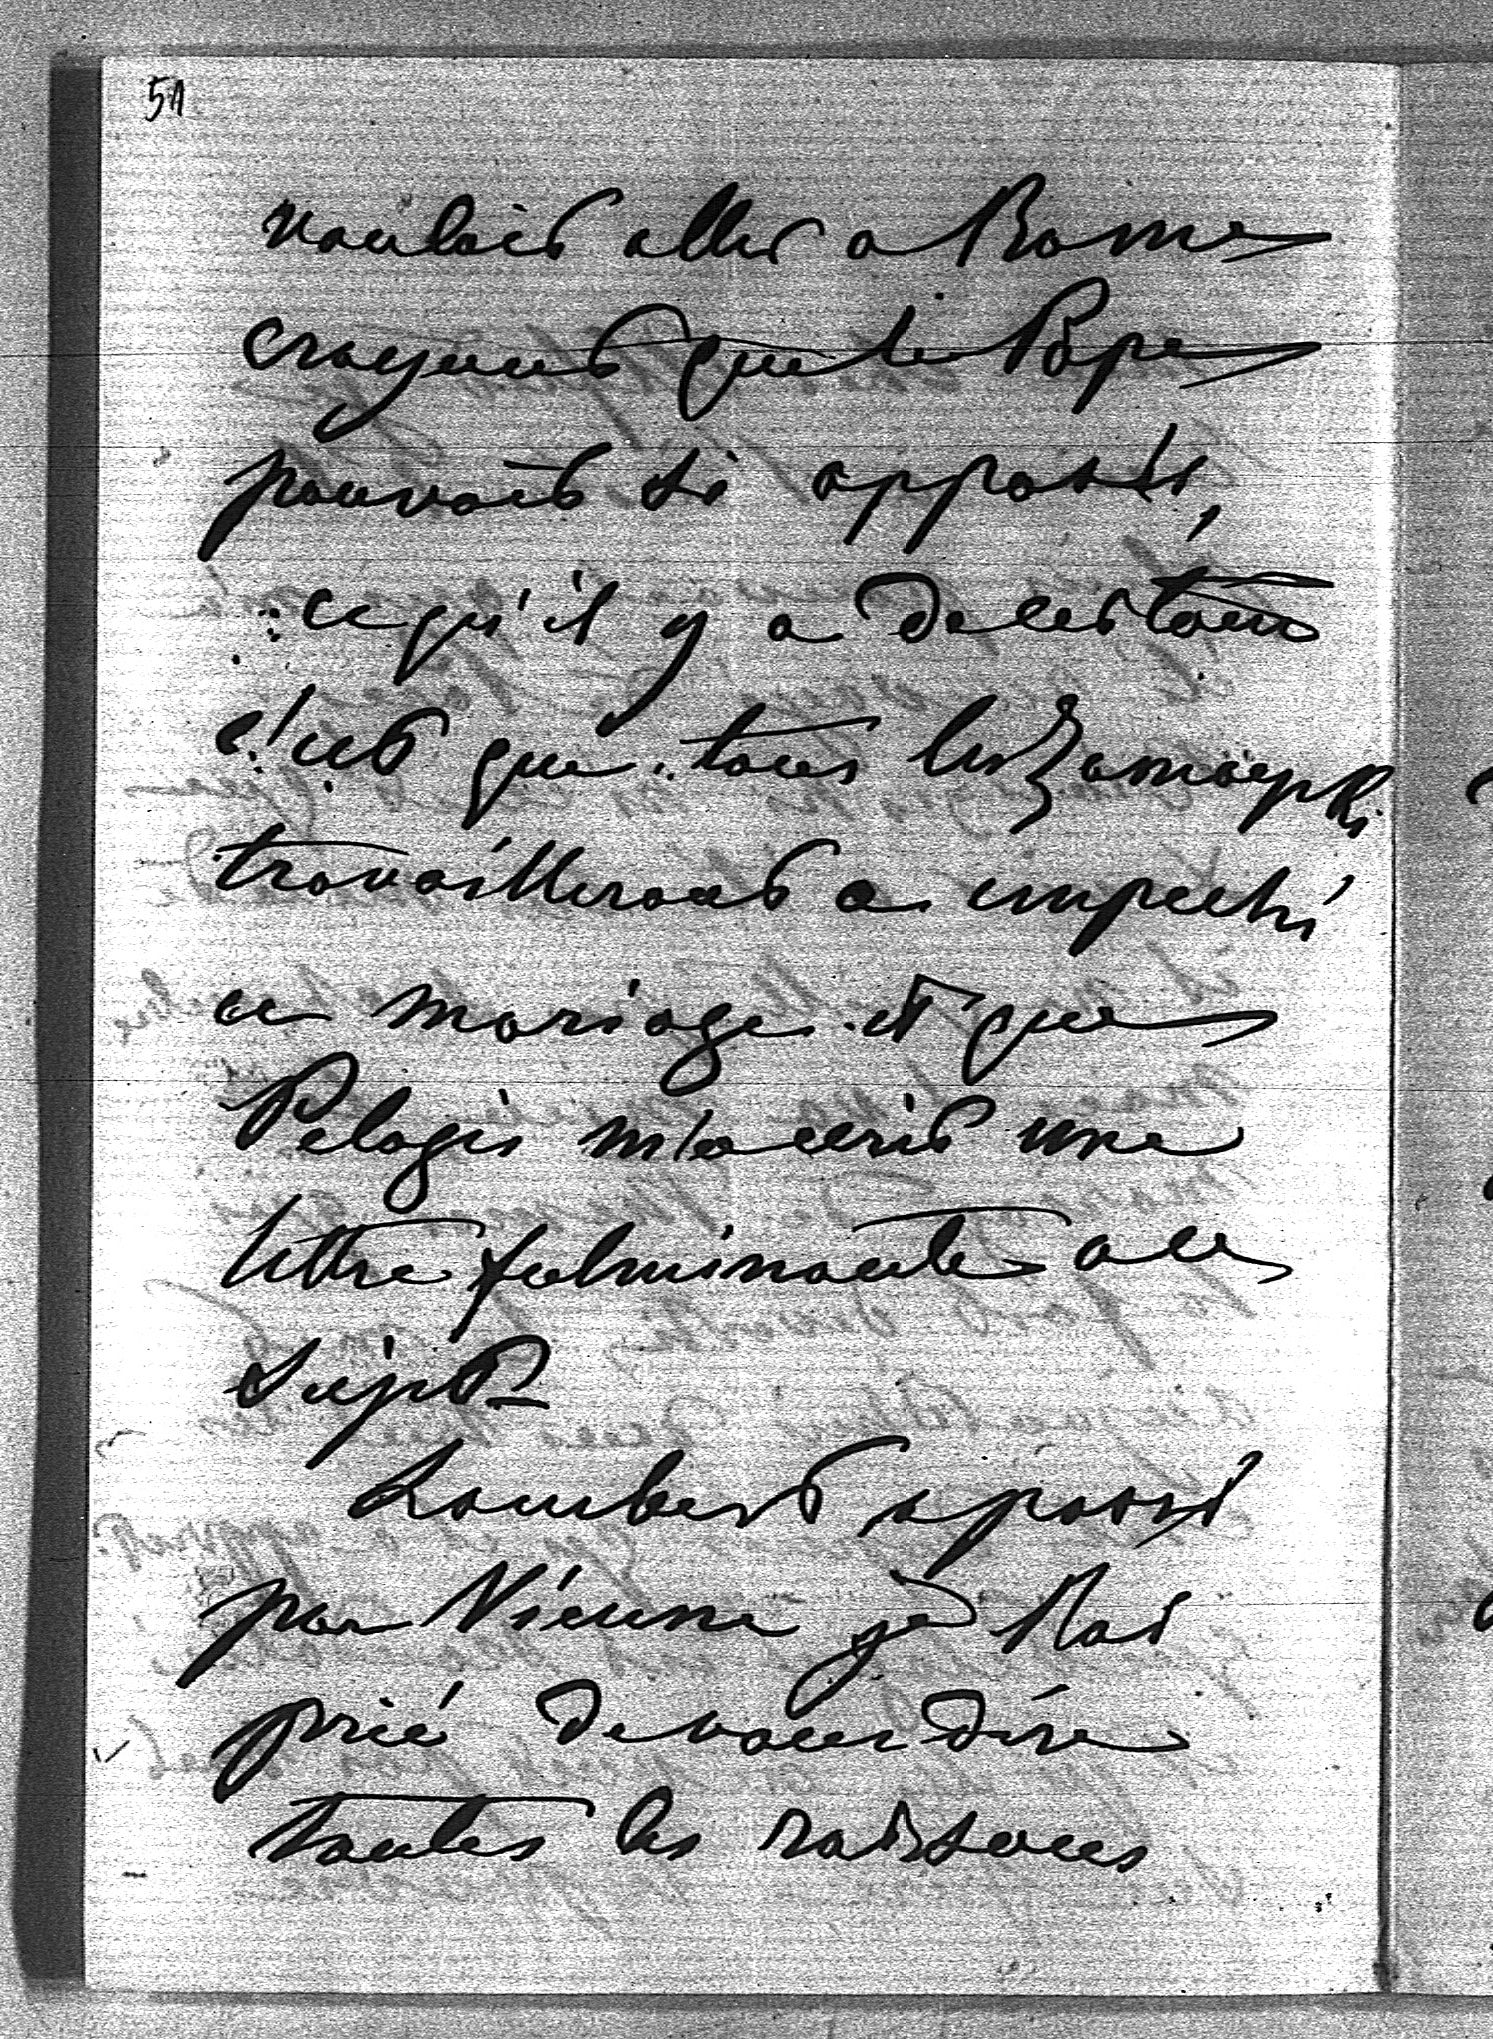 51
voulait aller a Rome
croyent que le Pape
pouvait si opposer,
ce qu'il y a de certain
c'est que tous les Zamoyski
travailleront a empecher
ce mariage et que
Pelagie m'a ecrit une
lettre fulminante a ce
sujet
Lambert a passé
par Vienne je l'ai
prié de vous dire
toutes les raisons